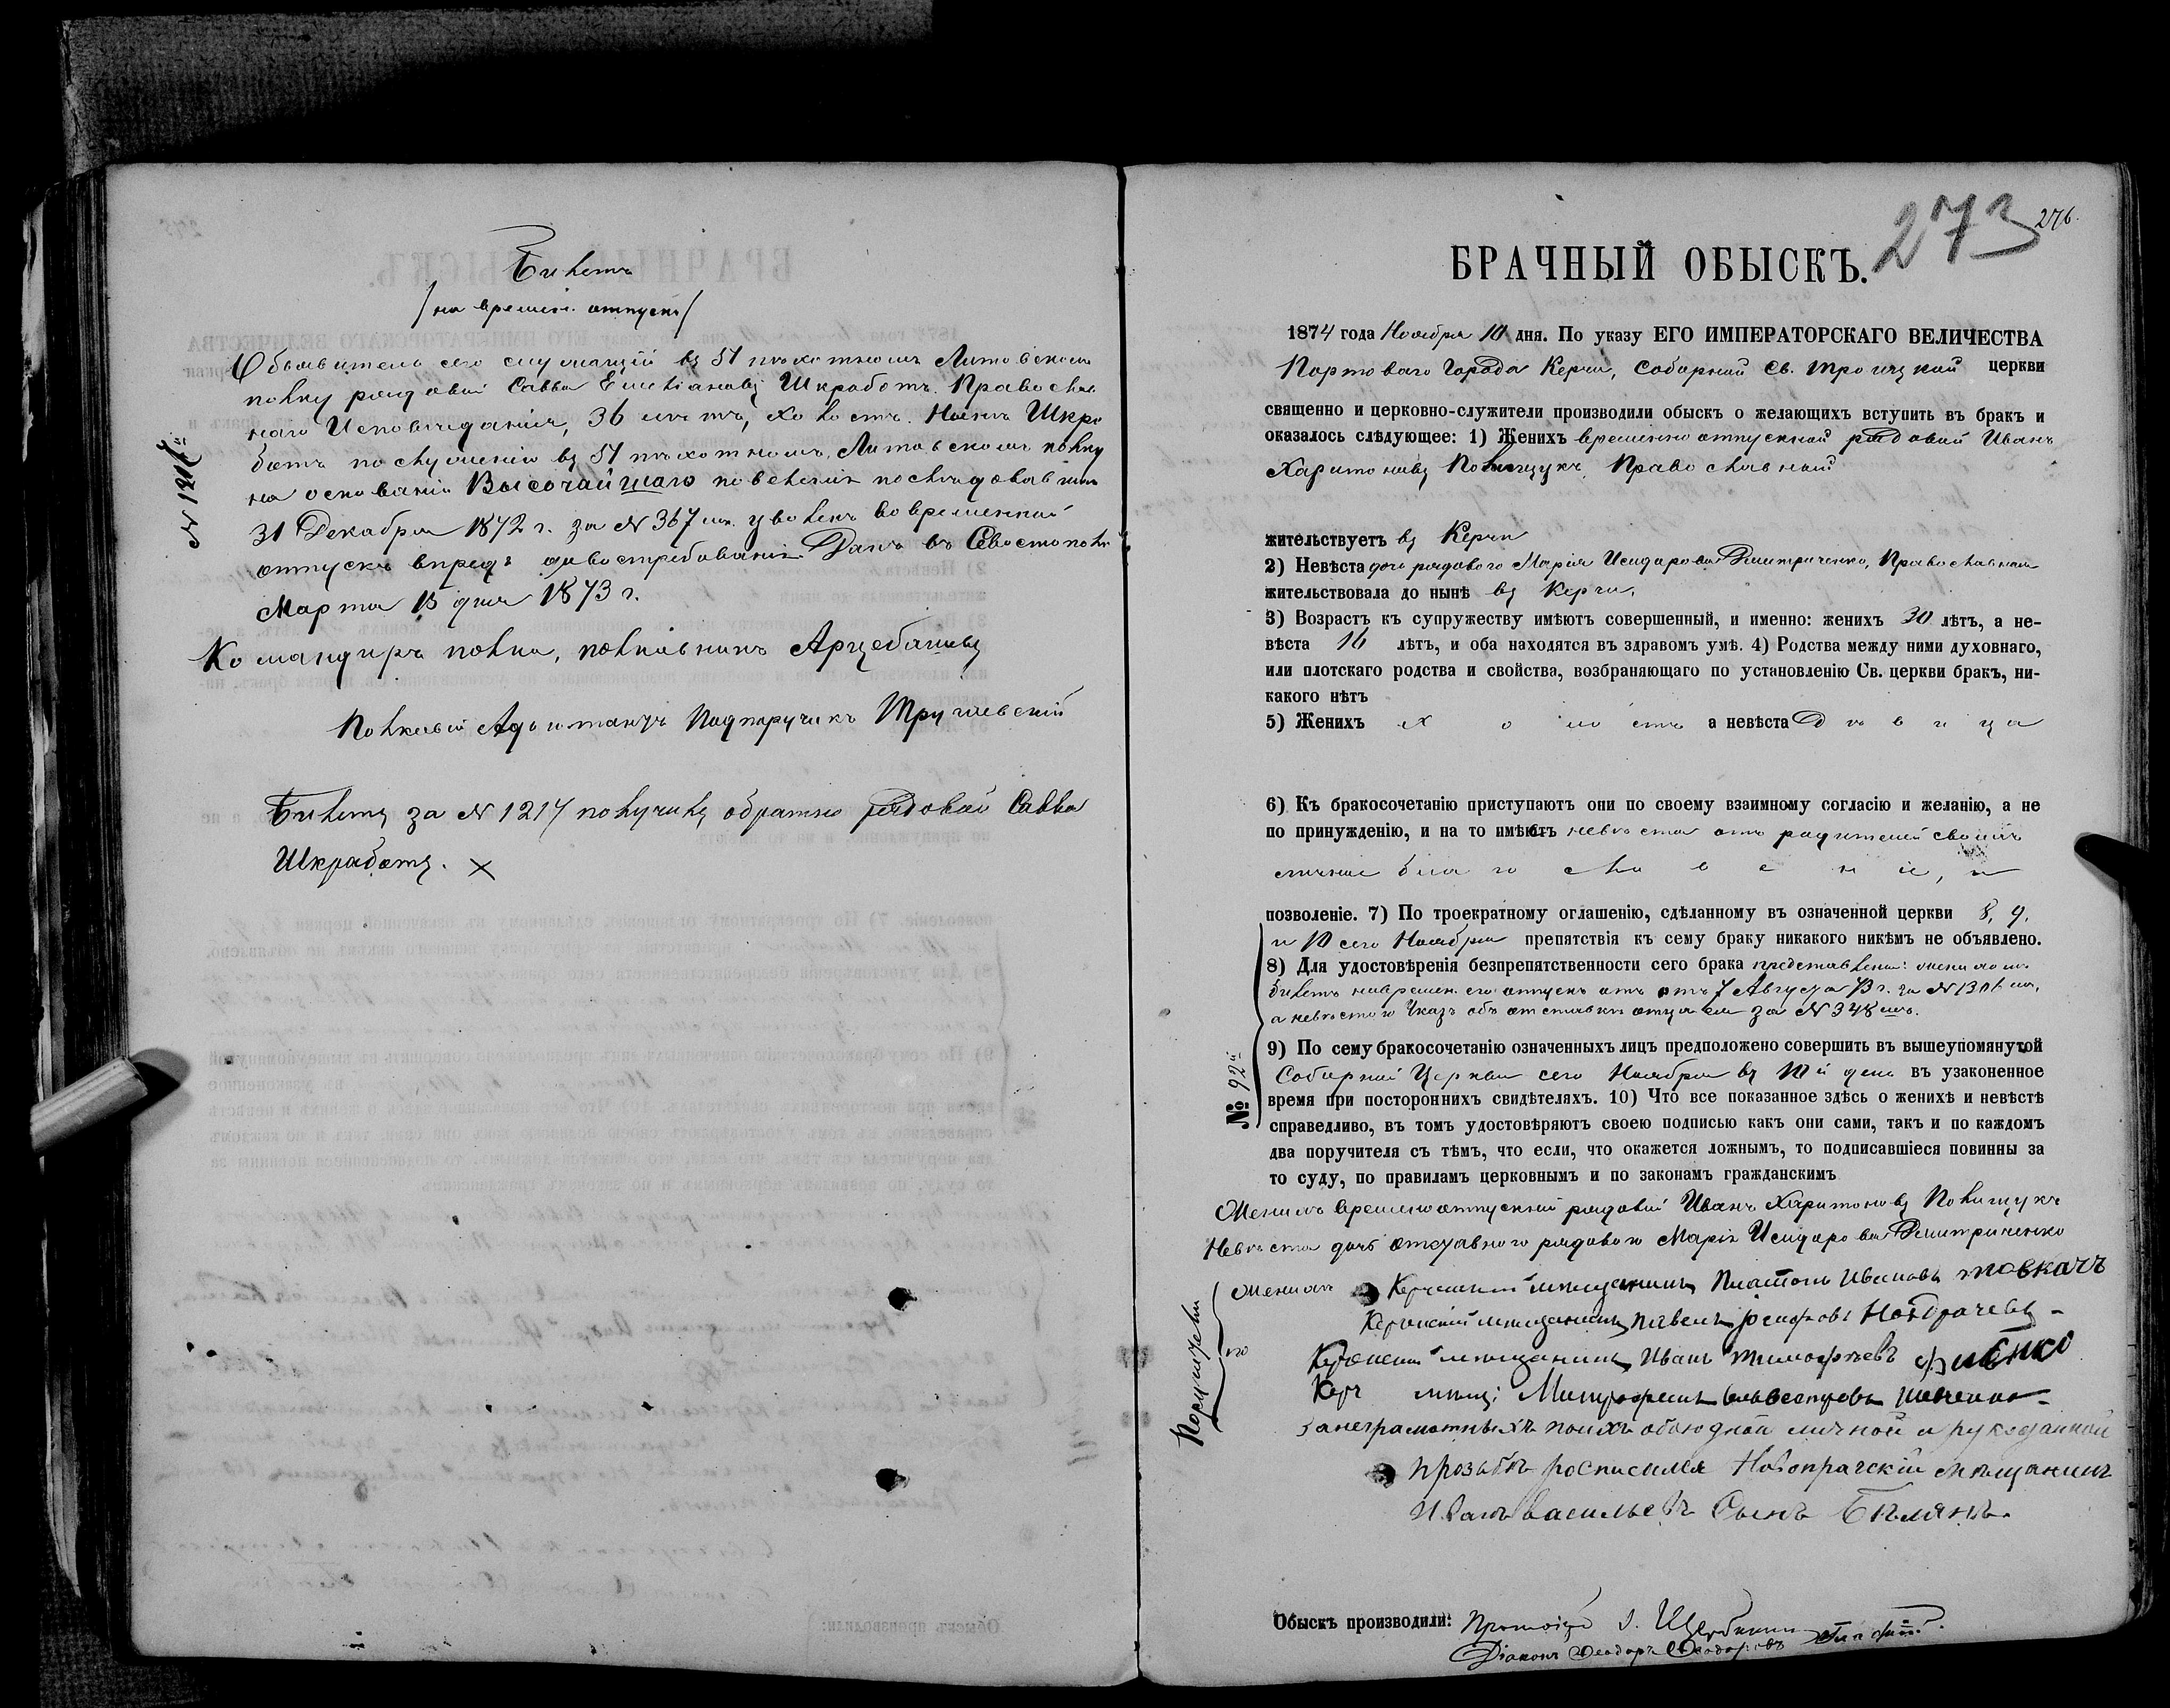 Билетъ
/на времен. отпускъ/
№ 1217й
Объявитель сего служащій въ 51 пѣхотномъ Литовскомъ
полку рядовой Савва Емельяновъ Шкработъ. Православ
наго Исповѣданія, 36 лѣтъ, холостъ. Нынѣ Шкро
ботъ по служенію въ 51 пѣхотномъ Литовскомъ полку
на основаніи Высочайшаго повеленія послѣдовавшаго
31 Декабря 1872 г. за № 367 уволенъ во временный
отпускъ впредь до востребованія. Данъ въ Севастополѣ
Марта 15 дня 1873 г.
Командиръ полка, полковникъ Арцебашевъ
Полковой Адъютантъ Подпоручикъ
Билетъ за № 1217 получилъ обратно рядовой Савва
Шкработъ. X
273 276.
БРАЧНЫЙ ОБЫСКЪ.
1874 года Ноября 10 дня. По указу ЕГО ИМПЕРАТОРСКАГО ВЕЛИЧЕСТВА
Портоваго Города Керчи, Соборной Св. Троицкой церкви
священно и церковно-служители производили обыскъ о желающихъ вступить въ бракъ и
оказалось слѣдующее: 1) Женихъ временно отпускной рядовой Иванъ
Харитоновъ Полищукъ, Православный
жительствуетъ въ Керчи
2) Невѣста дочь рядового Марія Исидорова Дмитриченко, Православная
жительствовала до нынѣ въ Керчи,
3) Возрастъ къ супружеству имѣютъ совершенный, и именно: женихъ 30 лѣтъ, а не-
вѣста 16 лѣтъ, и оба находятся въ здравомъ умѣ. 4) Родства между ними духовнаго,
или плотскаго родства и свойства, возбраняющаго по установленію Св. церкви бракъ, ни-
какого нѣтъ
5) Женихъ холостъ а невѣста Дѣвица
6) Къ бракосочетанію приступаютъ они по своему взаимному согласію и желанію, а не
по принужденію, и на то имѣетъ невѣста отъ родителей своихъ
личное благословеніе, и
позволеніе. 7) По троекратному оглашенію, сдѣланному въ означенной церкви 8, 9,
и 10 сего Ноября препятствія къ сему браку никакого никѣмъ не объявлено.
8) Для удостовѣренія безпрепятственности сего брака представлены: женихомъ
билетъ на времен. его отпускъ отъ 7 Августа 73 г. за № 1306,
а невѣстою Указъ объ отставкѣ отца ея за № 348.
№ 92й
9) По сему бракосочетанію означенныхъ лицъ предположено совершить въ вышеупомянутой
Соборной Церкви сего Ноября въ 10й день въ узаконенное
время при постороннихъ свидѣтеляхъ. 10) Что все показанное здѣсь о женихѣ и невѣстѣ
справедливо, въ томъ удостовѣряютъ своею подписью какъ они сами, такъ и по каждомъ
два поручителя съ тѣмъ, что если, что окажется ложнымъ, то подписавшіеся повинны за
то суду, по правиламъ церковнымъ и по законамъ гражданскимъ
Женихъ временноотпускной рядовой Иванъ Харитоновъ Полищукъ
Невѣста дочь отставного рядового Марія Исидорова Дмитриченко
Поручители по
Женихѣ Керченскій мѣщанинъ Платонъ Ивановъ Товкачъ
Керченскій мѣщанинъ Павелъ Ноздрачевъ
Керченскій мѣщанинъ Иванъ Тимофѣевъ
Керч мѣщ: Митрофанъ
за неграмотныхъ по ихъ обоюдной личной и рукоданной
прозьбѣ росписался Новопрагскій мѣщанинъ
Иванъ Васильевъ Сынъ Бѣлянъ.
Обыскъ производили: Протоіер І. Щербинин
Діаконъ Ѳеодоръ Ѳеодоровъ